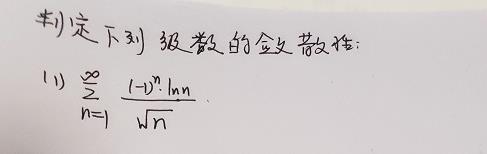 判定下列级数的敛散性:
(1) ∞∑n=1 (-1)^n·ln n / √n.